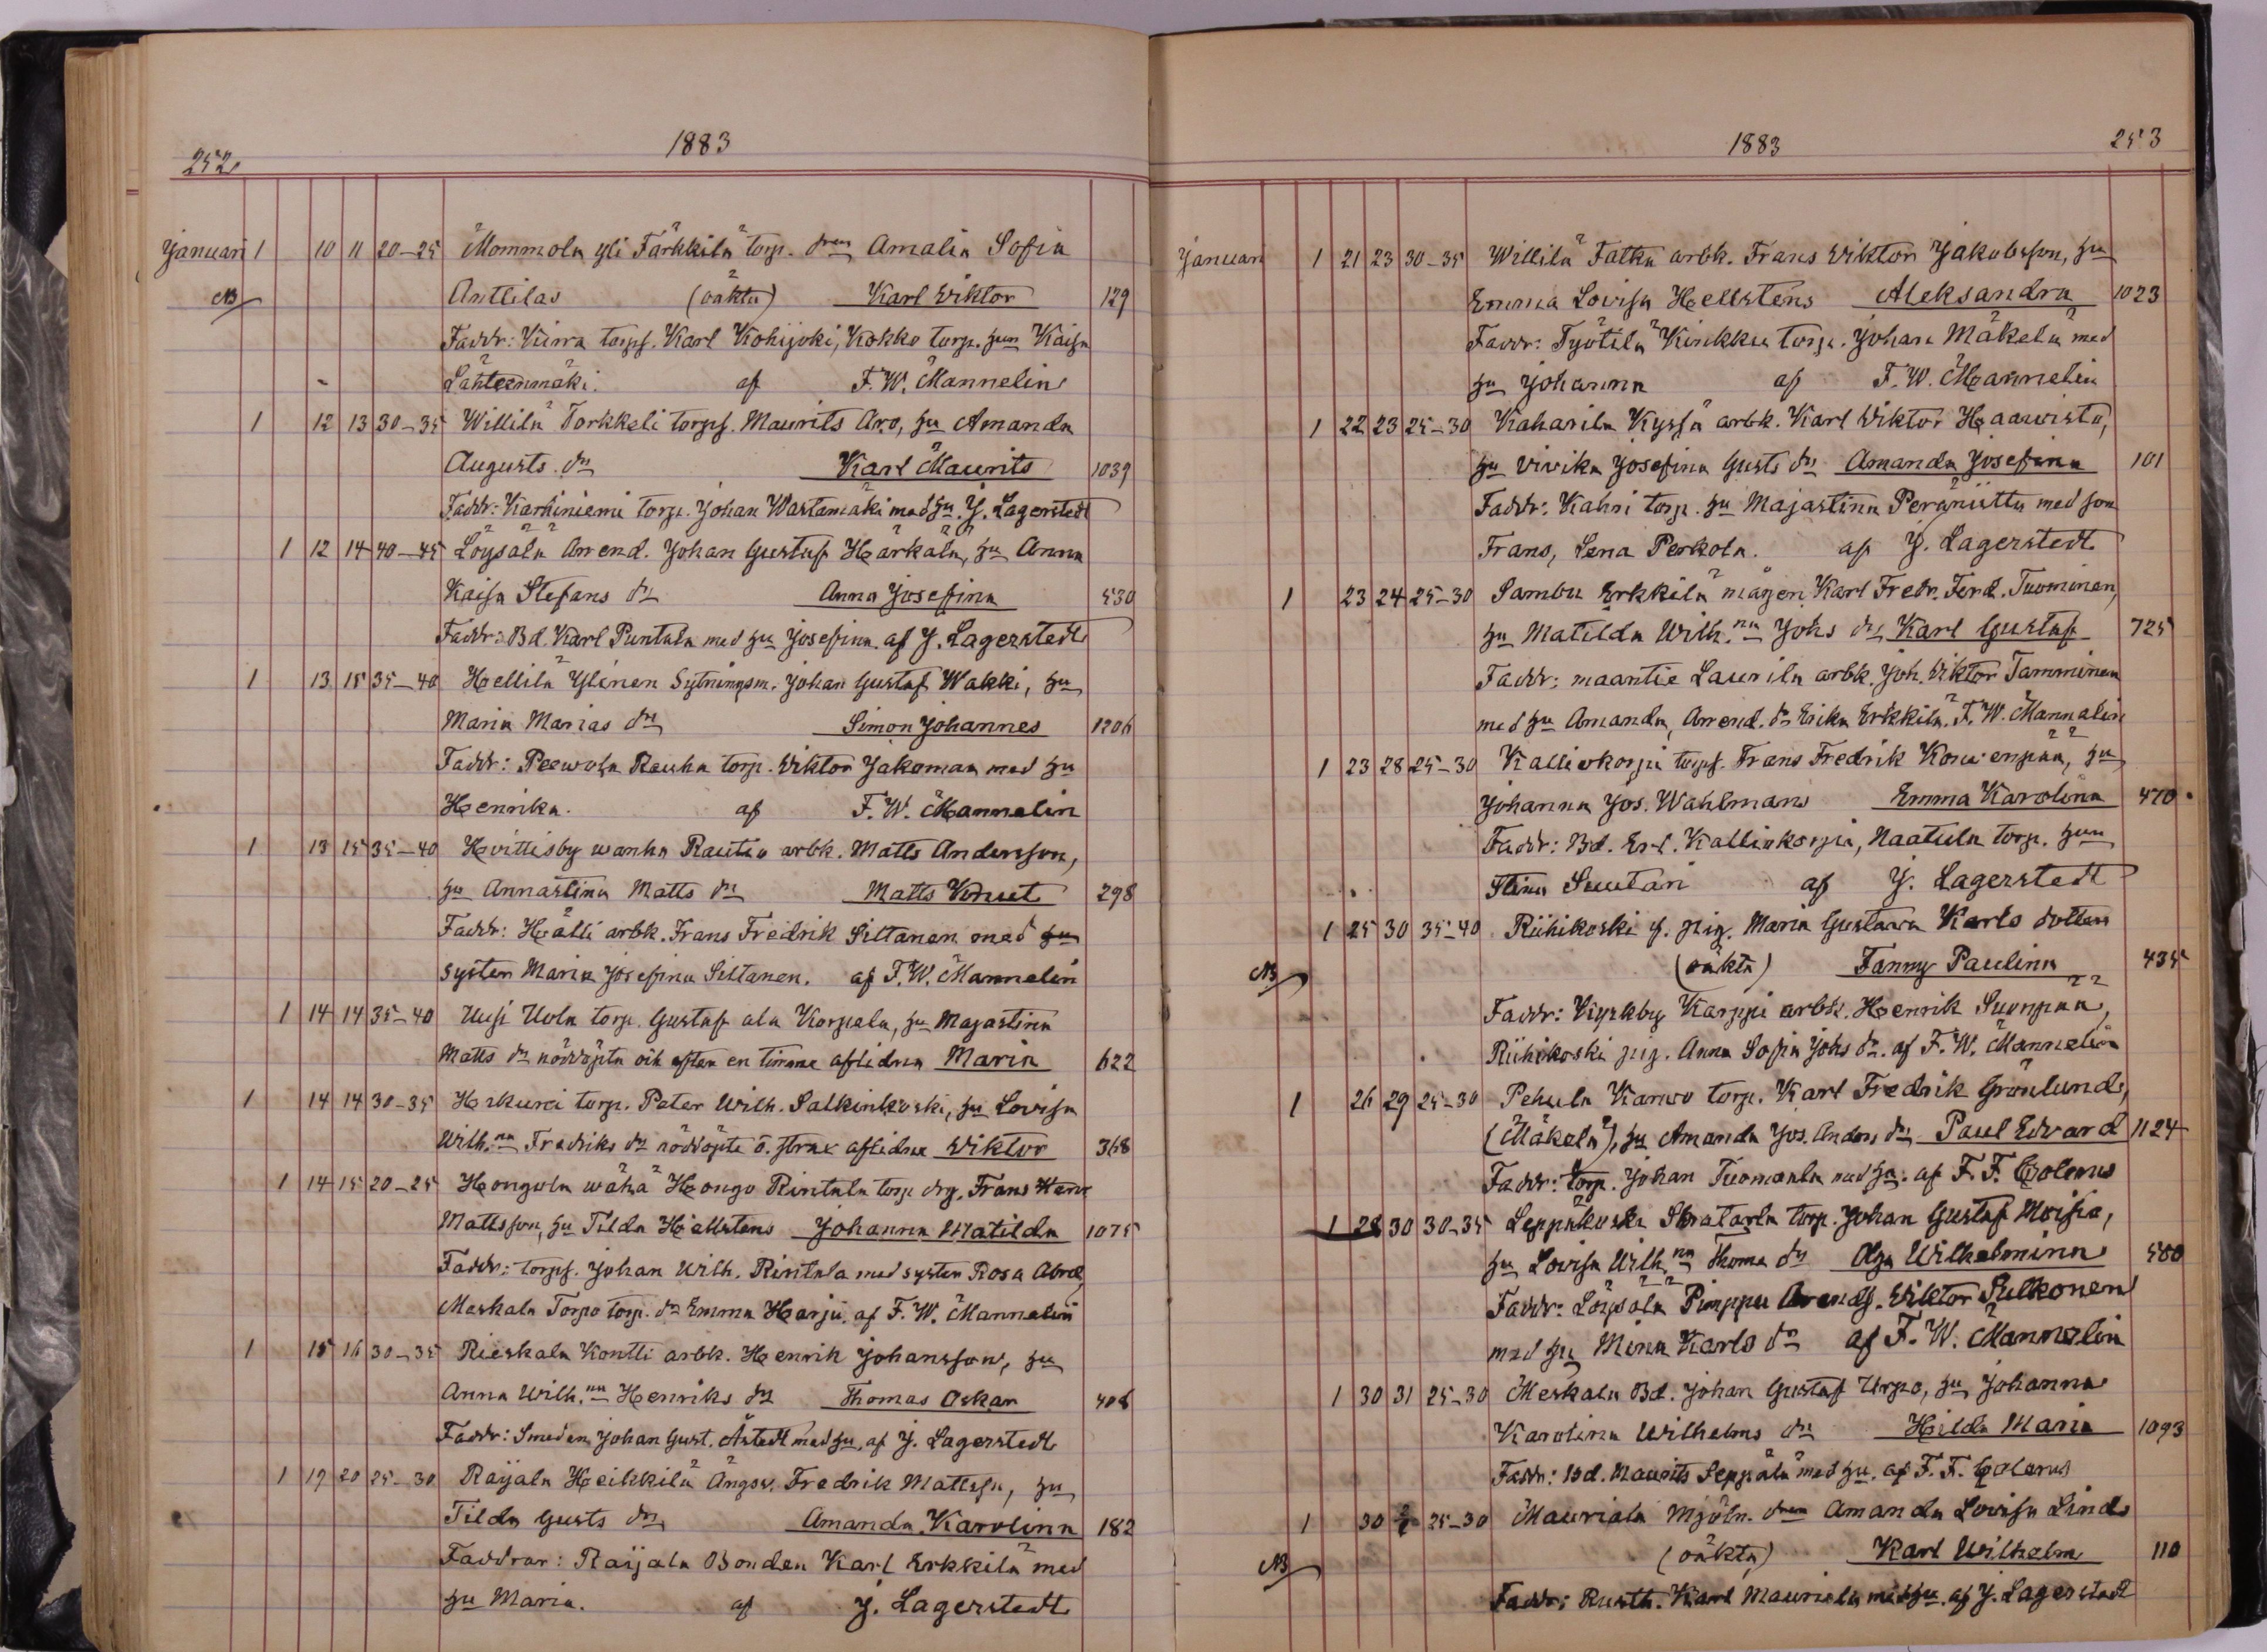 252.
1883
Januari 1 10 11 20-25 Mommola yli Färkkilä torp. drn Amalia Sofia
NB Anttilas (oäkta) Karl Wiktor 129
Faddr: Kiirra torpf. Karl Kohijoki, Kokko torp. hun Kaisa
Lähteenmäki. af F. W. Mannelin
1 12 13 30-35 Willilä Torkkeli torpf. Maurits Aro, hu Amanda
Augusts dr Karl Maurits 1039
Faddr: Karhiniemi torp. Johan Wartamäki med hu. J. Lagerstedt
1 12 14 40-45 Löysälä Arrend. Johan Gustaf Härkälä, hu Anna
Kaisa Stefans dr Anna Josefina 530
Faddr: Bd. Karl Puntala med hu Josefina. af J. Lagerstedt
1 13 15 35-40 Hellilä Ylinen Sytningsm. Johan Gustaf Wakki, hu
Maria Marias dr Simon Johannes 1206
Faddr: Peewola Rauha torp. Wiktor Jakoman med hu
Henrika. af F. W. Mannelin
1 13 15 35-40 Hvittisby wanha Rautio arbk. Matts Andersson,
hu Annastina Matts dr Matts Knut 298
Faddr: Hälli arbk. Frans Fredrik Siltanen med hu
syster Maria Josefina Siltanen. af F. W. Mannelin
1 14 14 35-40 Uusi Uola torp. Gustaf ala Korpela, hu Majastina
Matts dr nöddöpta och efter en timme aflidna Maria 622
1 14 14 30-35 Hakuni torp. Peter Wilh. Salkinkoski, hu Lovisa
Wilh.na Fredriks dr nöddöpte o. strax aflidne Viktor 368
1 14 15 20-25 Hongola wähä Hongo Rintala torp. drg. Frans Henr.
Mattsson, hu Tilda Hellstens Johanna Matilda 1075
Faddr: torpf. Johan Wilh. Rintala med syster Rosa Abrah.
Meskala Torpo torp. dr Emma Harju. af F. W. Mannelin
1 15 16 30-35 Rieskala Kontti arbk. Henrik Johansson, hu
Anna Wilh.na Henriks dr Thomas Oskar 408
Faddr: Smeden Johan Gust. Åstedt med hu, af J. Lagerstedt
1 19 20 25-30 Raijala Heikkilä Ängsv. Fredrik Mattss., hu
Tilda Gusts dr Amanda Karolina 182
Faddrar: Raijala Bonden Karl Erkkilä med
hu Maria. af J. Lagerstedt
1883
253
Januari 1 21 23 30-35 Willilä Fatka arbk. Frans Viktor Jakobsson, hu
Emma Lovisa Hellstens Aleksandra 1023
Faddr: Työtilä Kinkku torp. Johan Mäkelä med
hu Johanna af F. W. Mannelin
1 22 23 25-30 Kaharila Kyssä arbk. Karl Viktor Haawisto,
hu Vivika Josefina Gusts dr Amanda Josefina 101
Faddr: Kahri torp. hu Majastina Peräniittu med son
Frans, Lena Perkola. af J. Lagerstedt
1 23 24 25-30 Sambu Erkkilä mågen Karl Fredr. Ferd. Tuominen,
hu Matilda Wilh.na Johs dr Karl Gustaf 725
Faddr: maantie Laurila arbk. Joh. Viktor Tamminen
med hu Amanda, Arrend. dr Erika Erkkilä. F. W. Mannelin
1 23 28 25-30 Kalliokorpi torpf. Frans Fredrik Kowenpää, hu
Johanna Jos. Wahlmans Emma Karolina 470
Faddr: Bd. Erl. Kalliokorpi, Naatula torp. hun
Stina Suutari af J. Lagerstedt
1 25 30 35-40 Riihikoski f. pig. Maria Gustawa Karls dotter
NB (oäkta) Fanny Paulina 435
Faddr: Kyrkby Karppi arbk. Henrik Suonpää,
Riihikoski pig. Anna Sofia Johs dr. af F. W. Mannelin
1 26 29 25-30 Pehula Karwo torp. Karl Fredrik Grönlund,
(Mäkelä), hu Amanda Jos. Anders dr Paul Edvard 1124
Faddr: torp. Johan Tuomola med hu. af F. F.
1 28 30 30-35 Leppäkoski torp. Johan Gustaf Moisio,
hu Lovisa Wilh.na Thoms dr Olga Wilhelmina 500
Faddr: Löysälä Pimppu Arendf. Viktor Pulkonen
med hu Mina Karls dr af F. W. Mannelin
1 30 31 25-30 Meskala Bd. Johan Gustaf Urpo, hu Johanna
Karolina Wilhelms dr Hilda Maria 1093
Faddr: Bd. Maurits Seppälä med hu. af F. F.
1 30 2/2 25-30 Mauriala Mjöln. drn Amanda Lovisa Linds
NB (oäkta) Karl Wilhelm 110
Faddr: Rusth. Karl Mauriala med hu. af J. Lagerstedt